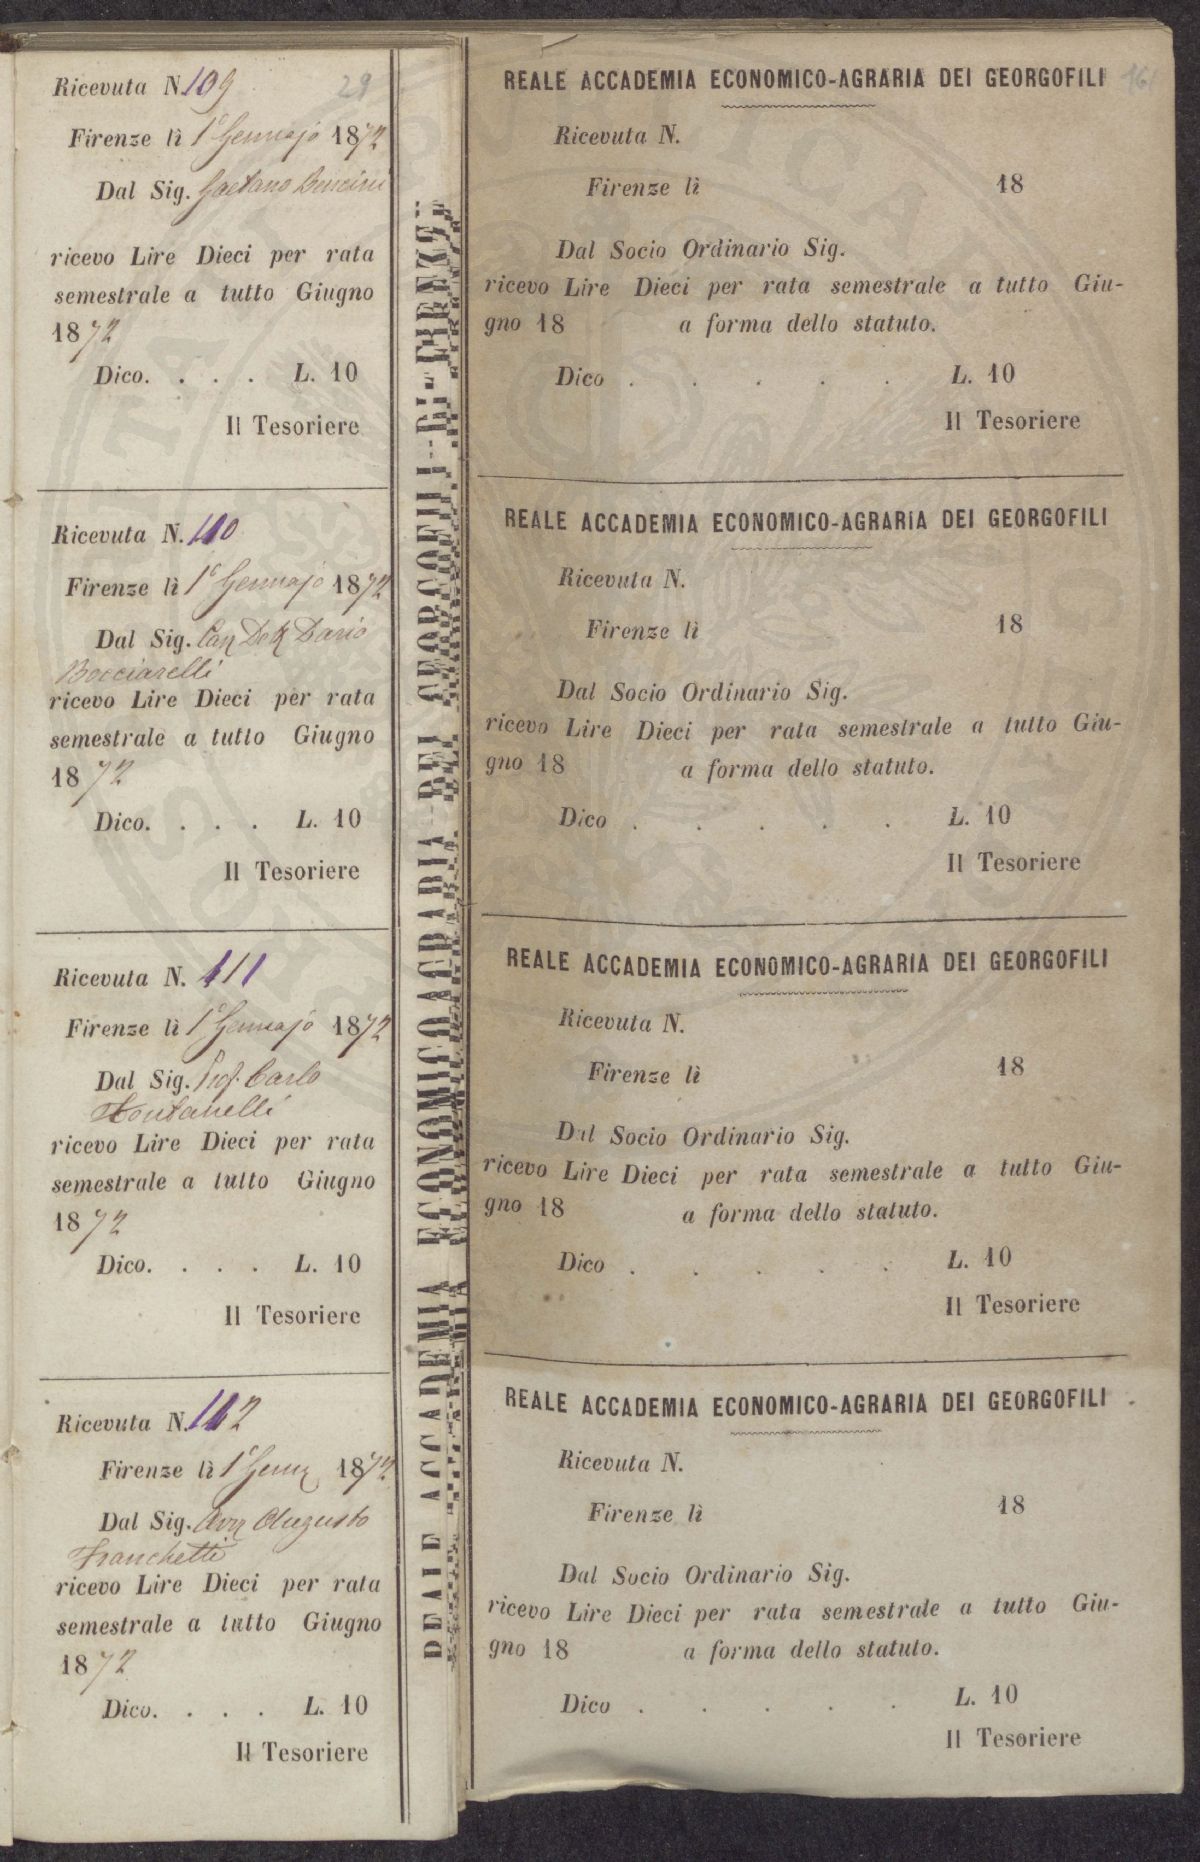 Ricevuta N. 109
29
Firenze lì 1° Gennajo 1872
Dal Sig. Gaetano Bencini
ricevo Lire Dieci per rata
semestrale a tutto Giugno
1872
Dico. . . . L. 10
Il Tesoriere
Ricevuta N. 110
Firenze lì 1° Gennajo 1872
Dal Sig. Can Dott Dario
Bocciarelli
ricevo Lire Dieci per rata
semestrale a tutto Giugno
1872
Dico. . . . L. 10
Il Tesoriere
Ricevuta N. 111
Firenze lì 1° Gennajo 1872
Dal Sig. Prof. Carlo
Fontanelli
ricevo Lire Dieci per rata
semestrale a tutto Giugno
1872
Dico. . . . L. 10
Il Tesoriere
Ricevuta N. 112
Firenze lì 1° Genn 1872
Dal Sig. Avv Augusto
Franchetti
ricevo Lire Dieci per rata
semestrale a tutto Giugno
1872
Dico. . . . L. 10
Il Tesoriere
REALE ACCADEMIA ECONOMICO AGRARIA DEI GEORGOFILI DI FIRENZE
REALE ACCADEMIA ECONOMICO-AGRARIA DEI GEORGOFILI
161
Ricevuta N.
Firenze lì 18
Dal Socio Ordinario Sig.
ricevo Lire Dieci per rata semestrale a tutto Giu-
gno 18 a forma dello statuto.
Dico . . . . . L. 10
Il Tesoriere
REALE ACCADEMIA ECONOMICO-AGRARIA DEI GEORGOFILI
Ricevuta N.
Firenze lì 18
Dal Socio Ordinario Sig.
ricevo Lire Dieci per rata semestrale a tutto Giu-
gno 18 a forma dello statuto.
Dico . . . . . L. 10
Il Tesoriere
REALE ACCADEMIA ECONOMICO-AGRARIA DEI GEORGOFILI
Ricevuta N.
Firenze lì 18
Dal Socio Ordinario Sig.
ricevo Lire Dieci per rata semestrale a tutto Giu-
gno 18 a forma dello statuto.
Dico . . . . . L. 10
Il Tesoriere
REALE ACCADEMIA ECONOMICO-AGRARIA DEI GEORGOFILI
Ricevuta N.
Firenze lì 18
Dal Socio Ordinario Sig.
ricevo Lire Dieci per rata semestrale a tutto Giu-
gno 18 a forma dello statuto.
Dico . . . . . L. 10
Il Tesoriere